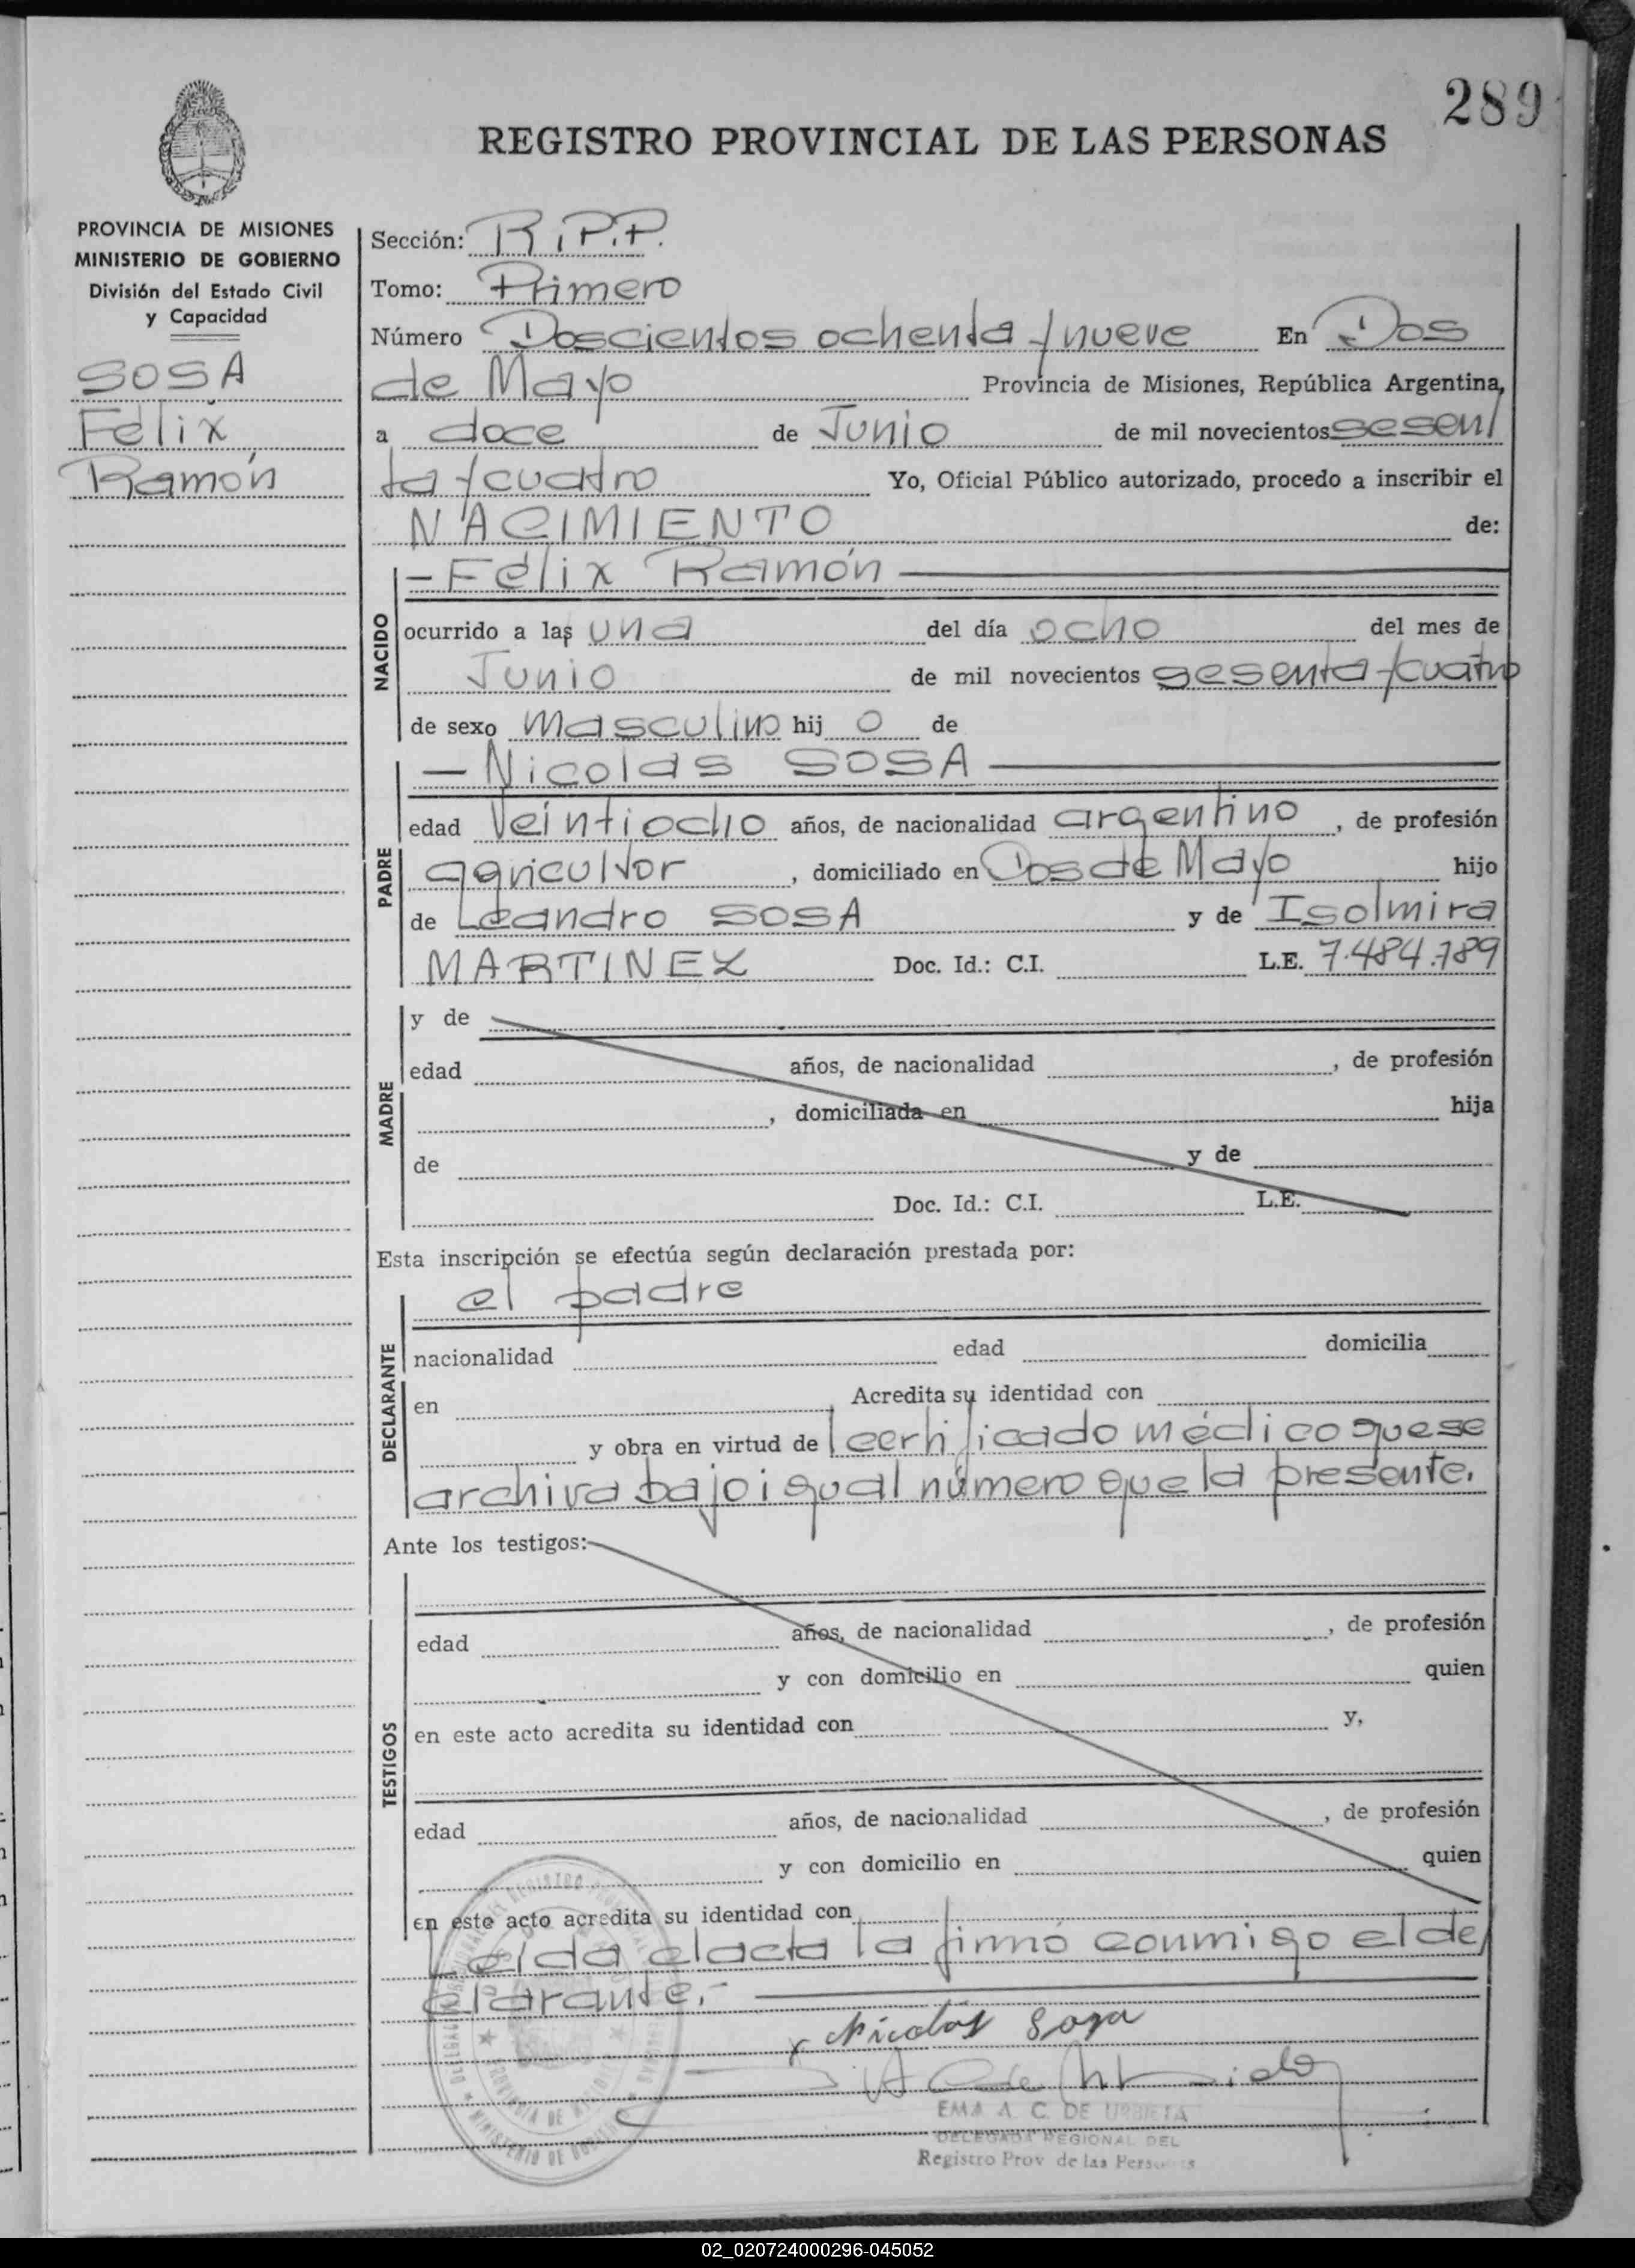 289
REGISTRO PROVINCIAL DE LAS PERSONAS
PROVINCIA DE MISIONES
MINISTERIO DE GOBIERNO
División del Estado Civil
y Capacidad
SOSA
Félix
Ramón
Sección: R.P.P.
Tomo: Primero
Número Doscientos ochenta y nueve En Dos
de Mayo Provincia de Misiones, República Argentina,
a doce de Junio de mil novecientos sesen/
ta y cuatro Yo, Oficial Público autorizado, procedo a inscribir el
NACIMIENTO de:
NACIDO
- Félix Ramón
ocurrido a las una del día ocho del mes de
Junio de mil novecientos sesenta y cuatro
de sexo masculino hijo de
PADRE
- Nicolás SOSA
edad veintiocho años, de nacionalidad argentino, de profesión
agricultor, domiciliado en Dos de Mayo hijo
de Leandro SOSA y de Isolmira
MARTINEZ Doc. Id.: C.I. L.E. 7.484.789
MADRE
y de
edad años, de nacionalidad , de profesión
, domiciliada en hija
de y de
Doc. Id.: C.I. L.E.
Esta inscripción se efectúa según declaración prestada por:
DECLARANTE
el padre
nacionalidad edad domicilia
en Acredita su identidad con
y obra en virtud de certificado médico que se
archiva bajo igual número que la presente.
Ante los testigos:
TESTIGOS
edad años, de nacionalidad , de profesión
y con domicilio en quien
en este acto acredita su identidad con y,
edad años, de nacionalidad , de profesión
y con domicilio en quien
en este acto acredita su identidad con
Leída el acta la firmó conmigo el de/
clarante.-
x Nicolás Sosa
EMA A. C. DE URBIETA
DELEGADA REGIONAL DEL
Registro Prov de las Personas
02_020724000296-045052